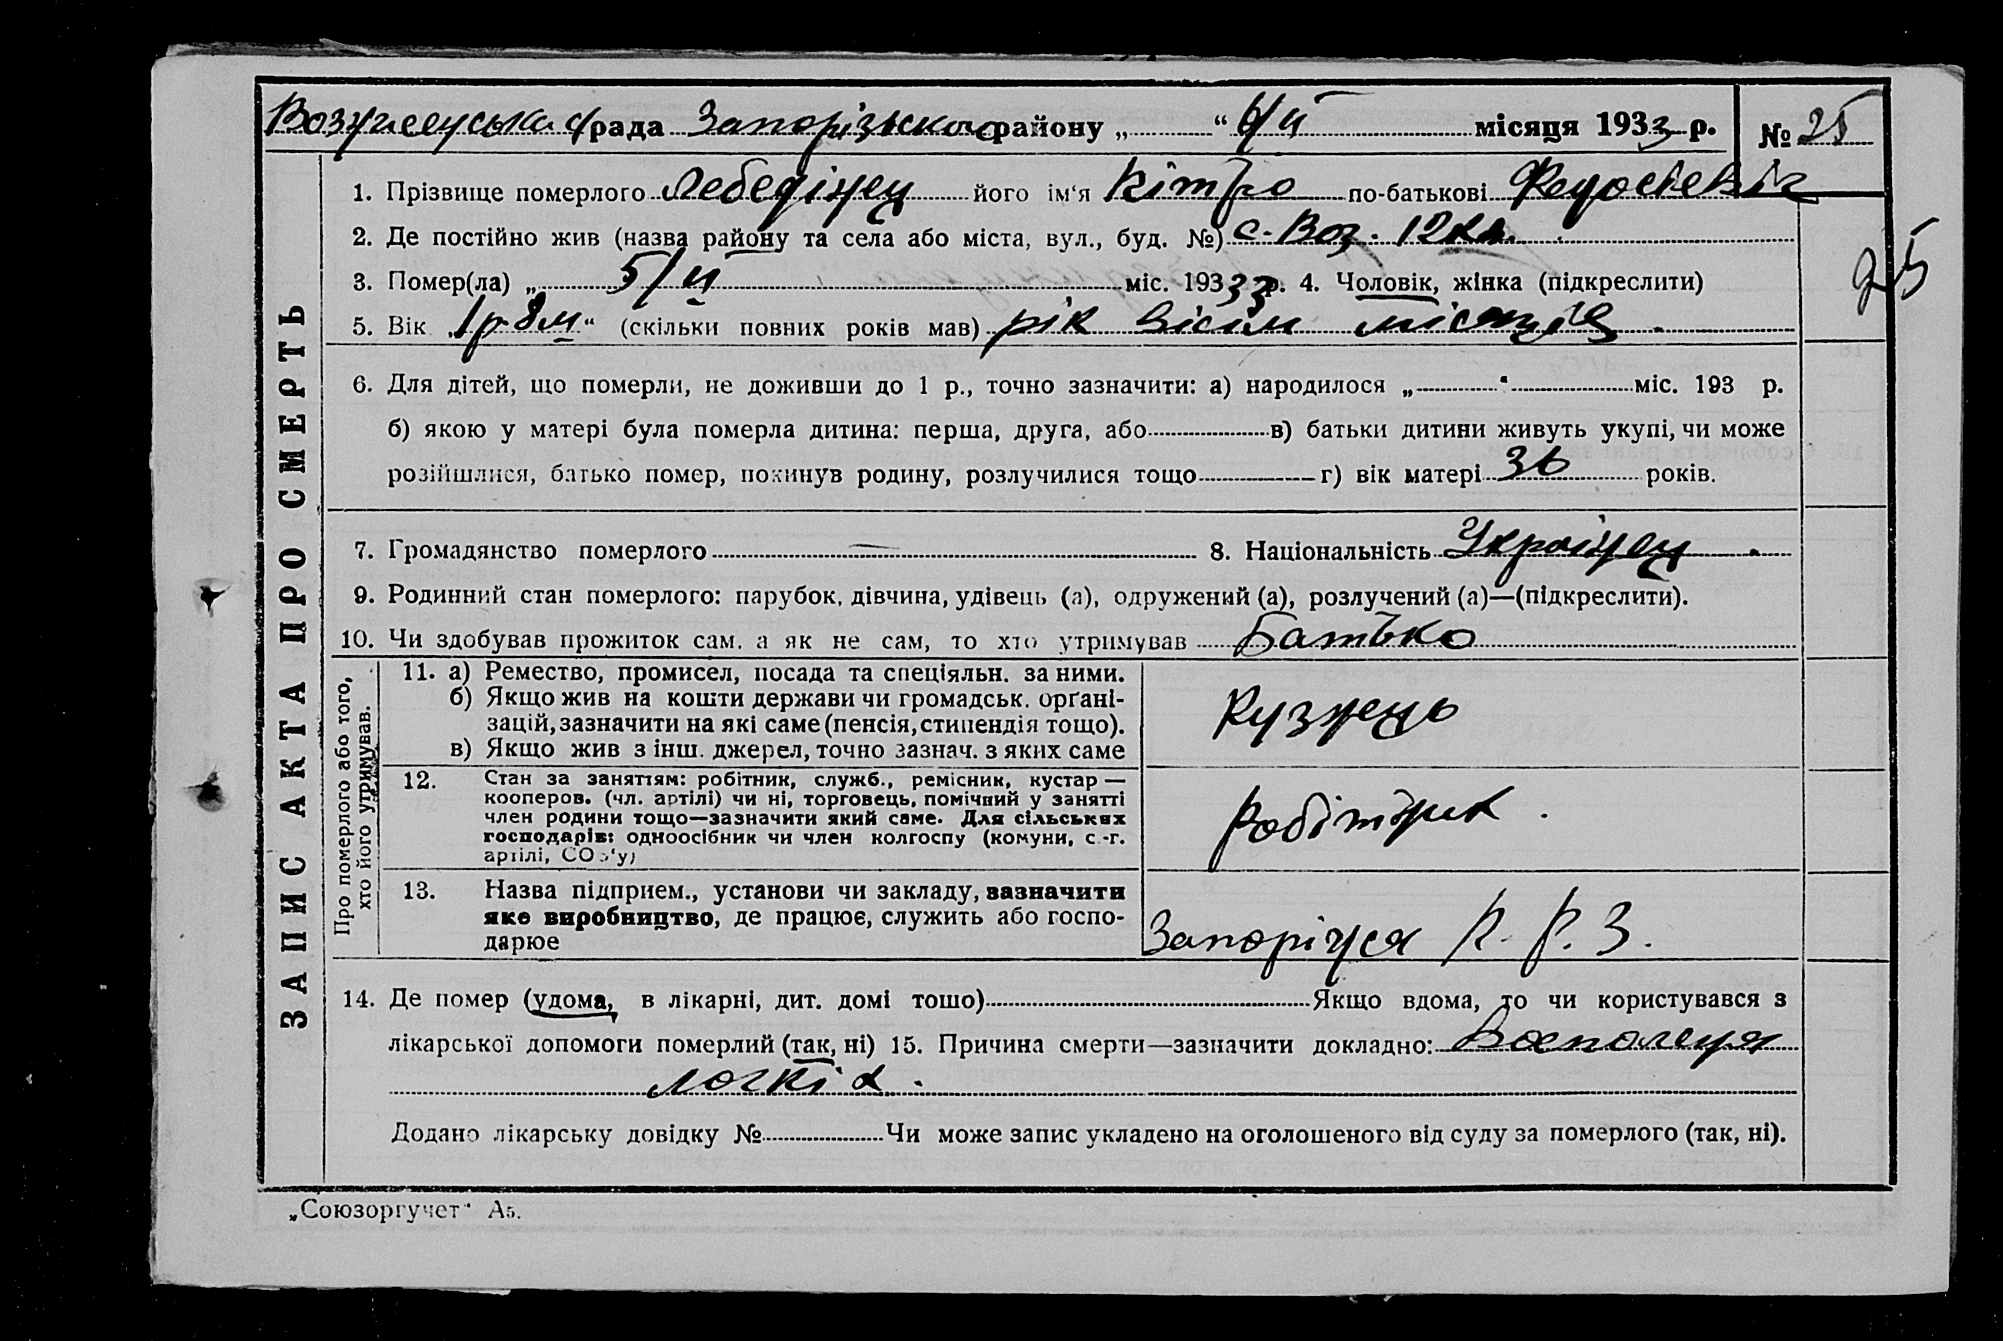 Вознесенська с/рада Запорізького району „ “ 6/II місяця 1933 р. № 25
1. Прізвище померлого Лебедінец його ім‘я Дмітро по-батькові Федосієвіч
2. Де постійно жив (назва району та села або міста, вул., буд. №) с. Воз. 12
25
3. Помер(ла) „ 5/II міс. 1933 р. 4. Чоловік, жінка (підкреслити)
5. Вік „1р 8м“ (скільки повних років мав) рік вісім місяців.
6. Для дітей, що померли, не доживши до 1 р., точно зазначити: а) народилося „ “ міс. 193 р.
б) якою у матері була померла дитина: перша, друга, або в) батьки дитини живуть укупі, чи може
розійшлися, батько помер, покинув родину, розлучилися тощо г) вік матері 36 років.
7. Громадянство померлого — 8. Національність Українец.
9. Родинний стан померлого: парубок, дівчина, удівець (а), одружений (а), розлучений (а)—(підкреслити).
10. Чи здобував прожиток сам, а як не сам, то хто утримував Батько
ЗАПИС АКТА ПРО СМЕРТЬ
Про померлого або того,
хто його утримував.
11. а) Ремество, промисел, посада та спеціяльн. за ними.
б) Якщо жив на кошти держави чи громадськ. орґані-
зацій, зазначити на які саме (пенсія, стипендія тощо).
в) Якщо жив з інш. джерел, точно зазнач. з яких саме
Кузнець
12. Стан за заняттям: робітник, служб., ремісник, кустар —
кооперов. (чл. артілі) чи ні, торговець, помічний у занятті
член родини тощо—зазначити який саме. Для сільських
господарів: одноосібник чи член колгоспу (комуни, с.-г.
артілі, СОЗ‘у)
Робітник.
13. Назва підприєм., установи чи закладу, зазначити
яке виробництво, де працює, служить або госпо-
дарює
Запоріжя П. Р. З.
14. Де помер (удома, в лікарні, дит. домі тощо) Якщо вдома, то чи користувався з
лікарської допомоги померлий (так, ні) 15. Причина смерти—зазначити докладно: Воспаленія
логкіх.
Додано лікарську довідку № Чи може запис укладено на оголошеного від суду за померлого (так, ні).
„Союзоргучет“ А5.